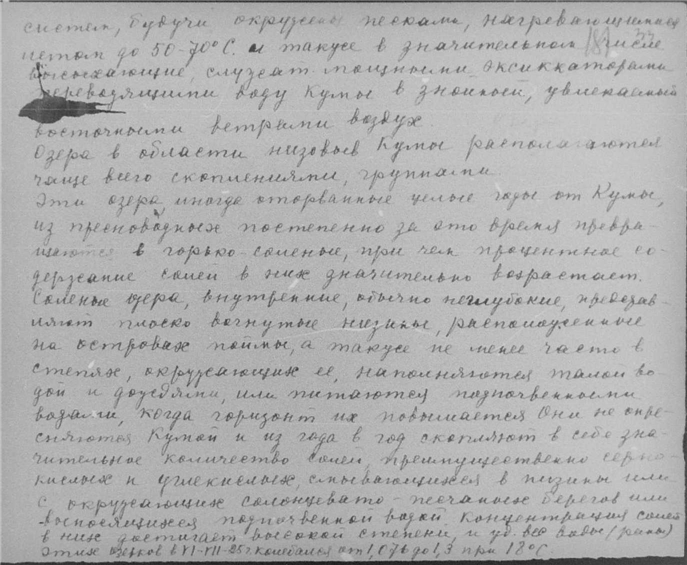 систем, будучи окружены песками, нагревающимися
летом до 50-70°С. а также в значительном числе
высыхающие, служат мощными эксиккаторами
переводящими воду Кумы в знойный, увлекаемый
восточными ветрами воздух.
Озера в области низовьев Кумы располагаются
чаще всего скоплениями, группами.
Эти озера иногда оторванные целые годы от Кумы,
из пресноводных постепенно за это время превра-
щаются в горько-соленые, при чем процентное со-
держание солей в них значительно возрастает.
Соленые озера, внутренние, обычно неглубокие, представ-
ляют плоско вогнутые низины, расположенные
на островах поймы, а также не менее часто в
степях, окружающих ее, наполняются талой во-
дой и дождями, или питаются подпочвенными
водами, когда горизонт их повышается Они не опре-
сняются Кумой и из года в год скопляют в себе зна-
чительное количество солей, преимущественно серно-
кислых и углекислых, смывающихся в низины или
с окружающих солонцевато-песчаных берегов или
выносящихся подпочвенной водой. Концентрация солей
в них достигает высокой степени, и уд. вес воды (рапы)
этих озерков в VI-VII-25г колебался от 1,076 до 1,3 при 18°С.